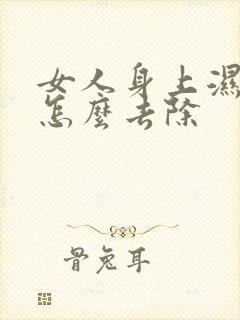 女人身上濕
怎麼去除
骨兔耳